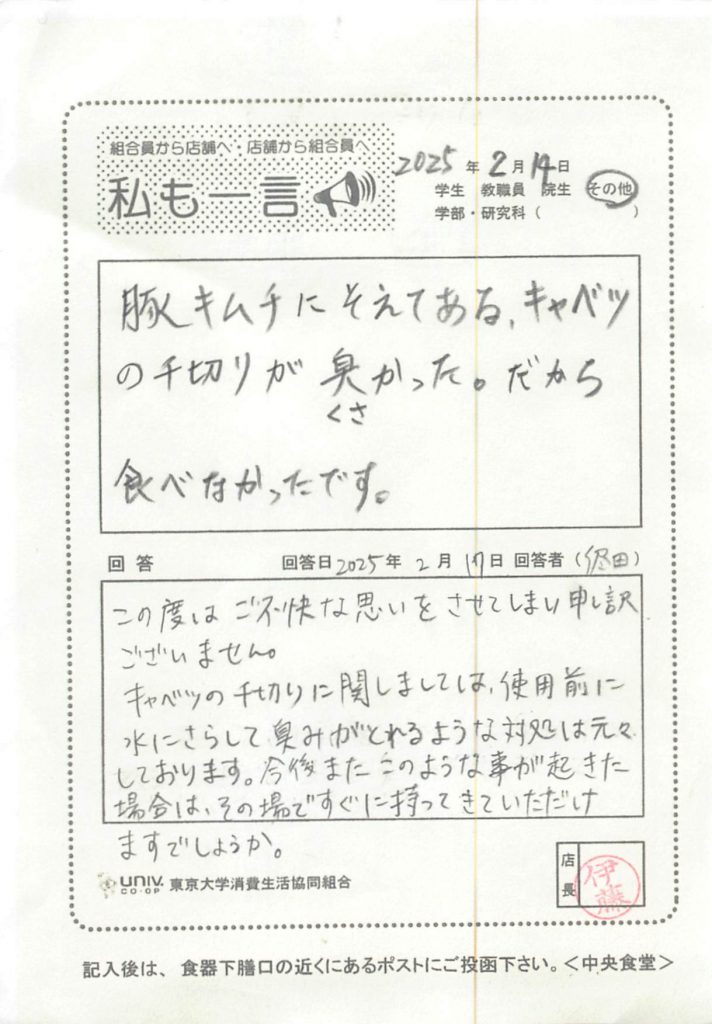 組合員から店舗へ・店舗から組合員へ
私も一言
2025年2月14日
学生 教職員 院生 その他
学部・研究科( )
豚キムチにそえてある、キャベツ
の千切りが臭かった。だから
くさ
食べなかったです。
回答 回答日2025年2月17日 回答者(経田)
この度はご不快な思いをさせてしまい申し訳
ございません。
キャベツの千切りに関しましては、使用前に
水にさらして臭みがとれるような対処は元々
しております。今後またこのような事が起きた
場合は、その場ですぐに持ってきていただけ
ますでしょうか。
UNIV. CO-OP 東京大学消費生活協同組合
店長 伊藤
記入後は、食器下膳口の近くにあるポストにご投函下さい。<中央食堂>